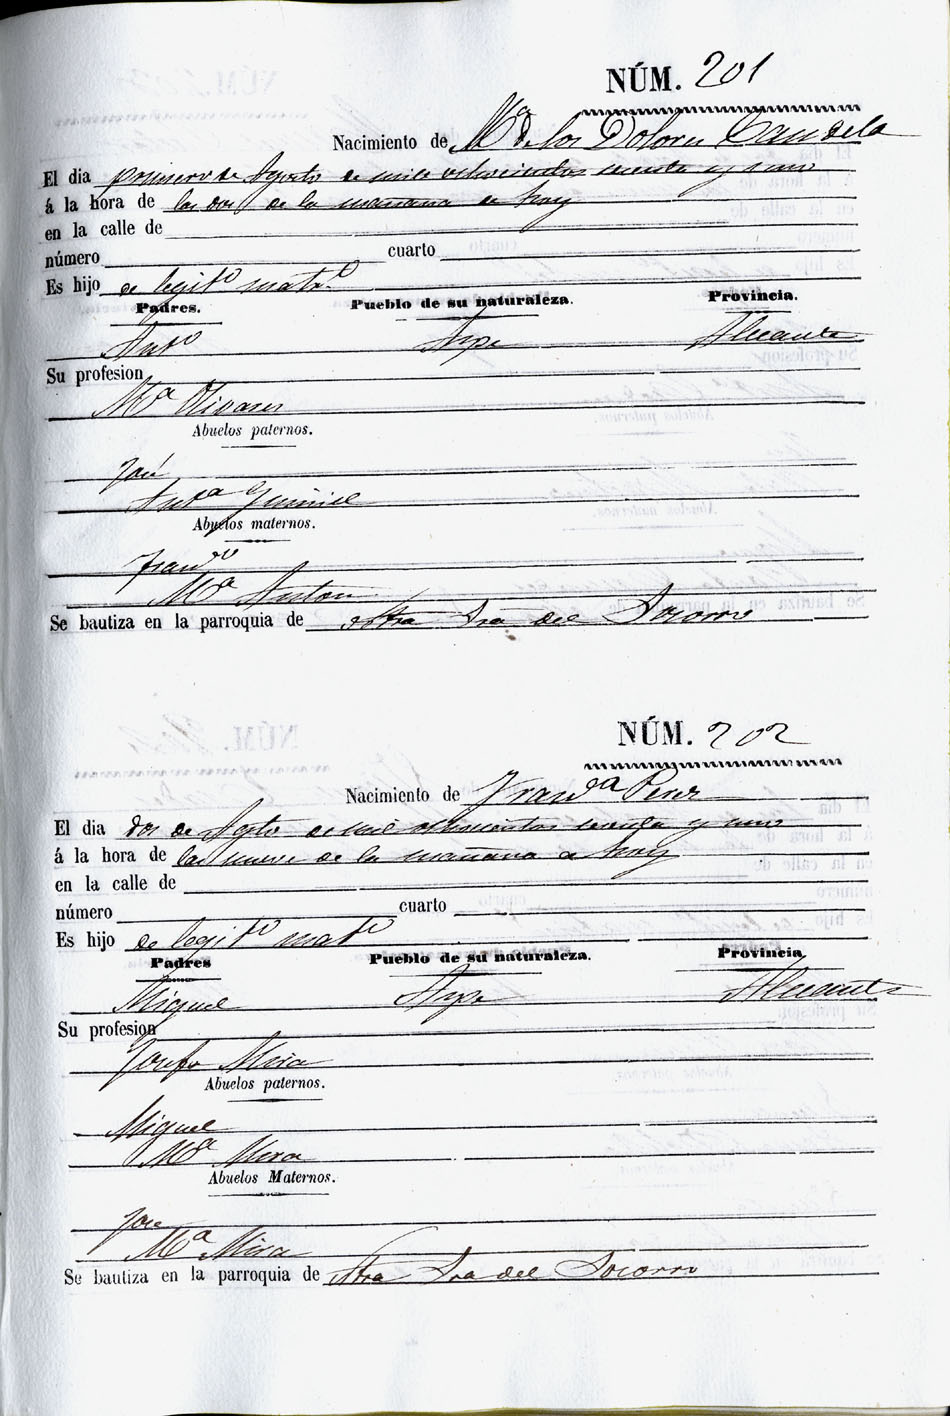 NÚM. 201
Nacimiento de Mª de los Dolores Candela
El dia primero de Agosto de mil ochocientos secenta y uno
á la hora de las dos de la mañana de hoy
en la calle de
número cuarto
Es hijo de legitº matº
Padres. Pueblo de su naturaleza. Provincia.
Antº Aspe Alicante
Su profesion
Mª Olivares
Abuelos paternos.
José
Antª
Abuelos maternos.
Francº
Mª Anton
Se bautiza en la parroquia de Ntra Sra del Socorro
NÚM. 202
Nacimiento de Francª Perez
El dia dos de Agto de mil ochocientos secenta y uno
á la hora de las nueve de la mañana de hoy
en la calle de
número cuarto
Es hijo de legitº matº
Padres Pueblo de su naturaleza. Provincia.
Miguel Aspe Alicante
Su profesion
Josefa Mira
Abuelos paternos.
Miguel
Mª Mira
Abuelos Maternos.
Jose
Mª Mira
Se bautiza en la parroquia de Ntra Sra del Socorro